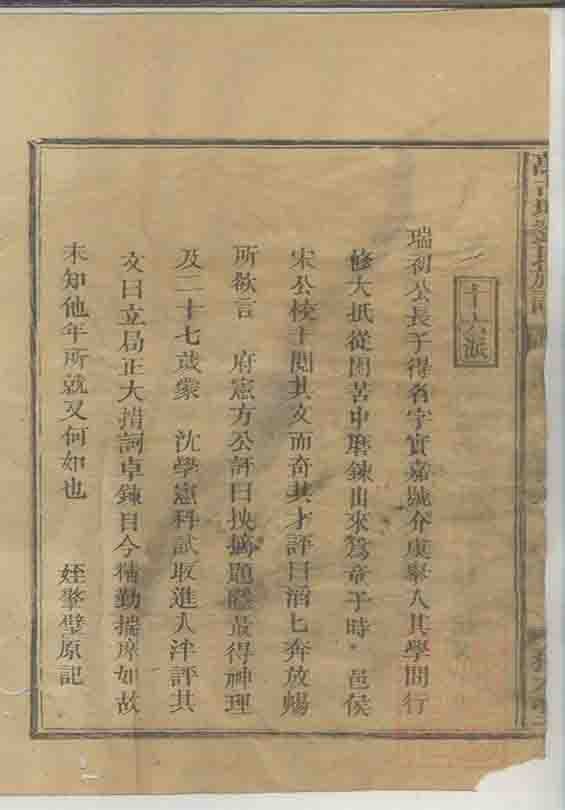 十六派
瑞初公長子得名字實嘉號介庚舉人其學問行
修大抵從困苦中磨鍊出來為童子時 邑侯
宋公校士閱其文而奇其才評曰滔七奔放暢
所欲言 府憲方公評曰挾摘題髓最得神理
及二十七歲蒙 沈學憲科試取進入泮評其
文曰立局正大措詞卓鍊自今精勤揣摩如故
未知他年所就又何如也 姪肇璧原記
族譜